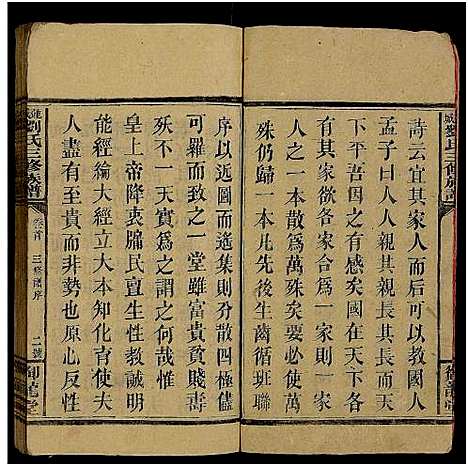 詩云宜其家人而后可以教國人
孟子曰人人親其親長其長而天
下平吾不能無感矣國在天下各
有其家欲各有其家即一家
人之一本散為萬殊矣放萬
殊仍歸一本凡先後生齒循班聯
序以近圖而遙集則分散四極儘
可羅而致之一堂雖富貴賤壽
殀不一天實為之謂之何哉惟
皇上帝降衷牖民亶生性教誠明
能經綸大經大本知化育使夫
人盡有至而非勢也原人心性
劉氏三修族譜
卷首 三修譜序 二號
御龍堂